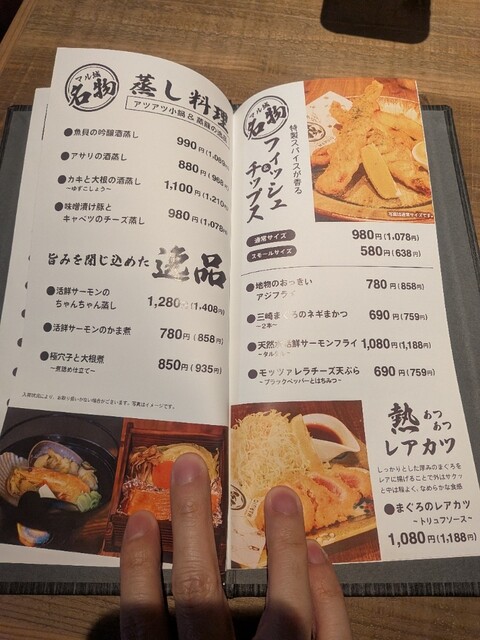 マル城
名物
蒸し料理
アツアツ小鍋&蒸籠の逸品
●魚貝の吟醸酒蒸し
990円(1,089円)
●アサリの酒蒸し
880円(968円)
●カキと大根の酒蒸し
~ゆずこしょう~
1,100円(1,210円)
●味噌漬け豚と
キャベツのチーズ蒸し
980円(1,078円)
旨みを閉じ込めた逸品
●活鮮サーモンの
ちゃんちゃん蒸し
1,280円(1,408円)
●活鮮サーモンのかま煮
780円(858円)
●極穴子と大根煮
~煮詰め仕立て~
850円(935円)
入荷状況により、お取り扱いがない場合がございます。写真はイメージです。
マル城
名物
特製スパイスが香る
フィッシュ&チップス
写真は通常サイズです。
通常サイズ 980円(1,078円)
スモールサイズ 580円(638円)
●地物のおっきい
アジフライ
780円(858円)
●三崎まぐろのネギまかつ
~2本~
690円(759円)
●天然水活鮮サーモンフライ
~タルタル~
1,080円(1,188円)
●モッツァレラチーズ天ぷら
~ブラックペッパーとはちみつ~
690円(759円)
熱
あつあつ
レアカツ
しっかりとした厚みのまぐろを
レアに揚げることで外はサクッ
と中は程よく、なめらかな食感
●まぐろのレアカツ
~トリュフソース~
1,080円(1,188円)